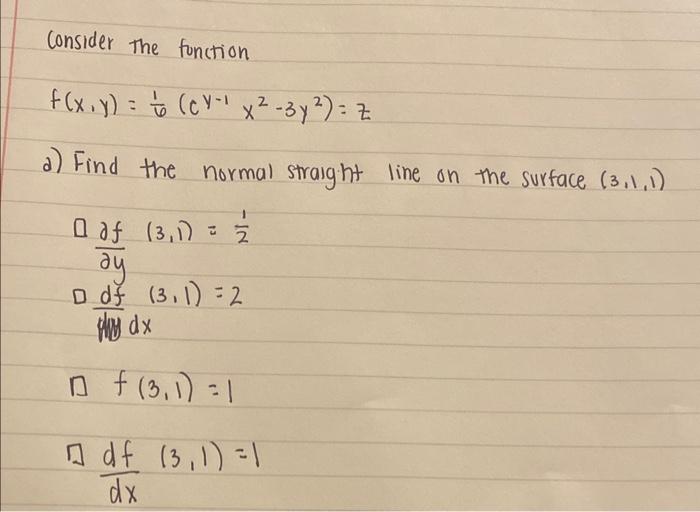 Consider the fonction
f(x,y) = 1/6 (e^y-1 x^2 - 3y^2) = z
a) Find the normal straight line on the surface (3,1,1)
□ ∂f/∂y (3,1) = 1/2
□ df/dx (3,1) = 2
□ f(3,1) = 1
□ df/dx (3,1) = 1